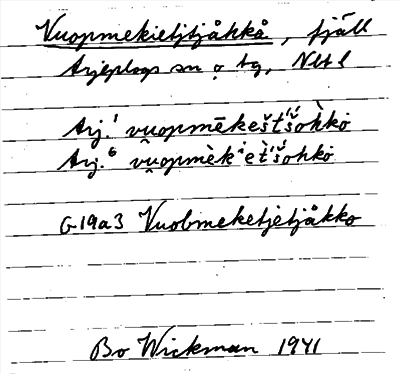 Vuopmekietjtjåkkå, fjäll
Arjeplogs sn o tg, Nbt l
Arj.¹ vuopmēkeštšohkò
Arj.⁶ vuopmèkˈetšohkò
G19a3 Vuobmeketjetjåkko
Bo Wickman 1941